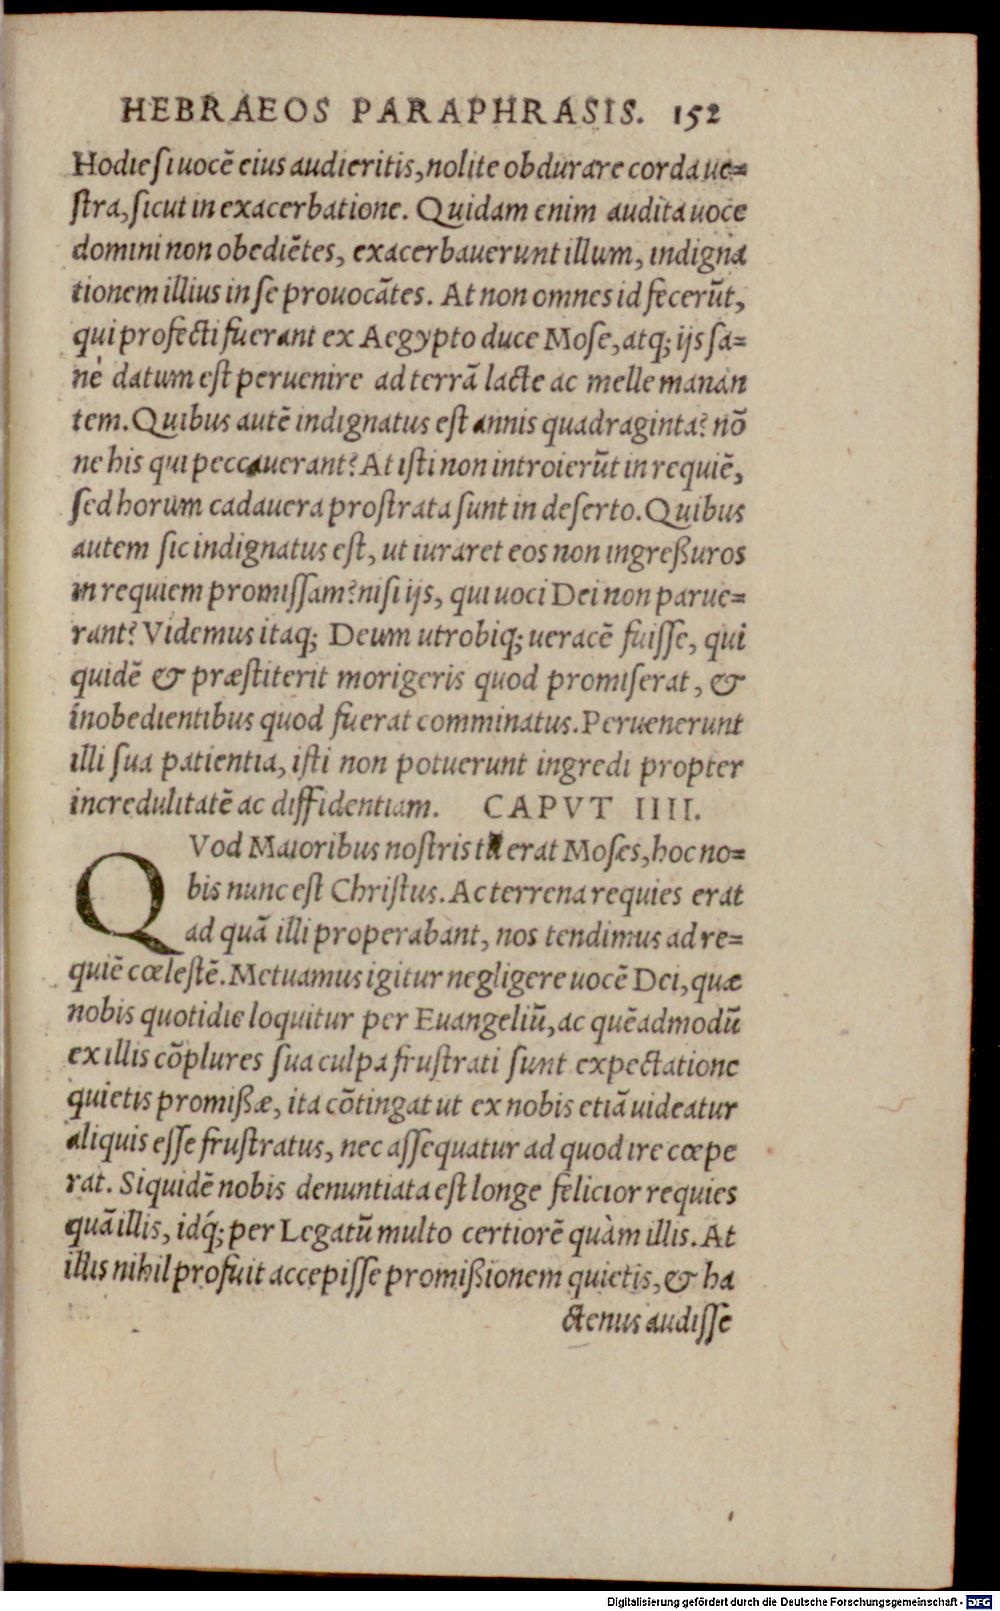 HEBRAEOS PARAPHRASIS. 152
Hodie si uocē eius audieritis, nolite obdurare corda ue=
stra, sicut in exacerbatione. Quidam enim audita uoce
domini non obediētes, exacerbauerunt illum, indigna
tionem illius in se prouocātes. At non omnes id fecerūt,
qui profecti fuerant ex Aegypto duce Mose, atq; ijs sa=
nè datum est peruenire ad terrā lacte ac melle manan
tem. Quibus autē indignatus est annis quadraginta? nō
ne his qui peccauerant? At isti non introierūt in requiē,
sed horum cadauera prostrata sunt in deserto. Quibus
autem sic indignatus est, ut iuraret eos non ingreßuros
in requiem promissam? nisi ijs, qui uoci Dei non parue=
rant? Videmus itaq; Deum utrobiq; ueracē fuisse, qui
quidē & præstiterit morigeris quod promiserat, &
inobedientibus quod fuerat comminatus. Peruenerunt
illi sua patientia, isti non potuerunt ingredi propter
incredulitatē ac diffidentiam. CAPVT IIII.
QVod Maioribus nostris erat Moses, hoc no=
bis nunc est Christus. Ac terrena requies erat
ad quā illi properabant, nos tendimus ad re=
quiē cœlestē. Metuamus igitur negligere uocē Dei, quæ
nobis quotidie loquitur per Euangeliū, ac quēadmodū
ex illis cōplures sua culpa frustrati sunt expectatione
quietis promißæ, ita cōtingat ut ex nobis etiā uideatur
aliquis esse frustratus, nec assequatur ad quod ire cœpe
rat. Siquidē nobis denuntiata est longe felicior requies
quā illis, idq́; per Legatū multo certiorē quàm illis. At
illis nihil profuit accepisse promißionem quietis, & ha
ctenus audisse
Digitalisierung gefördert durch die Deutsche Forschungsgemeinschaft - DFG